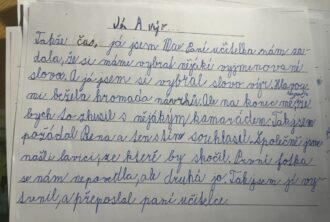 Já A výr
Takže čus, já jsem Max Paní učitelka nám za-
dala, že si máme vybrat nějaké vyjmenované
slovo. A já jsem si vybral slovo výr. Hlavou
mi běžela hromada návrhů. Ale na konec mě
bych to zkusil s nějakým kamarádem. Tak jsem
požádal a ten s tím souhlasil. Společně jsme
našli lavici, ze které by skočil. První fotka
se nám nepovedla, ale druhá jo. Tak jsem jí
a přeposlal paní učitelce.